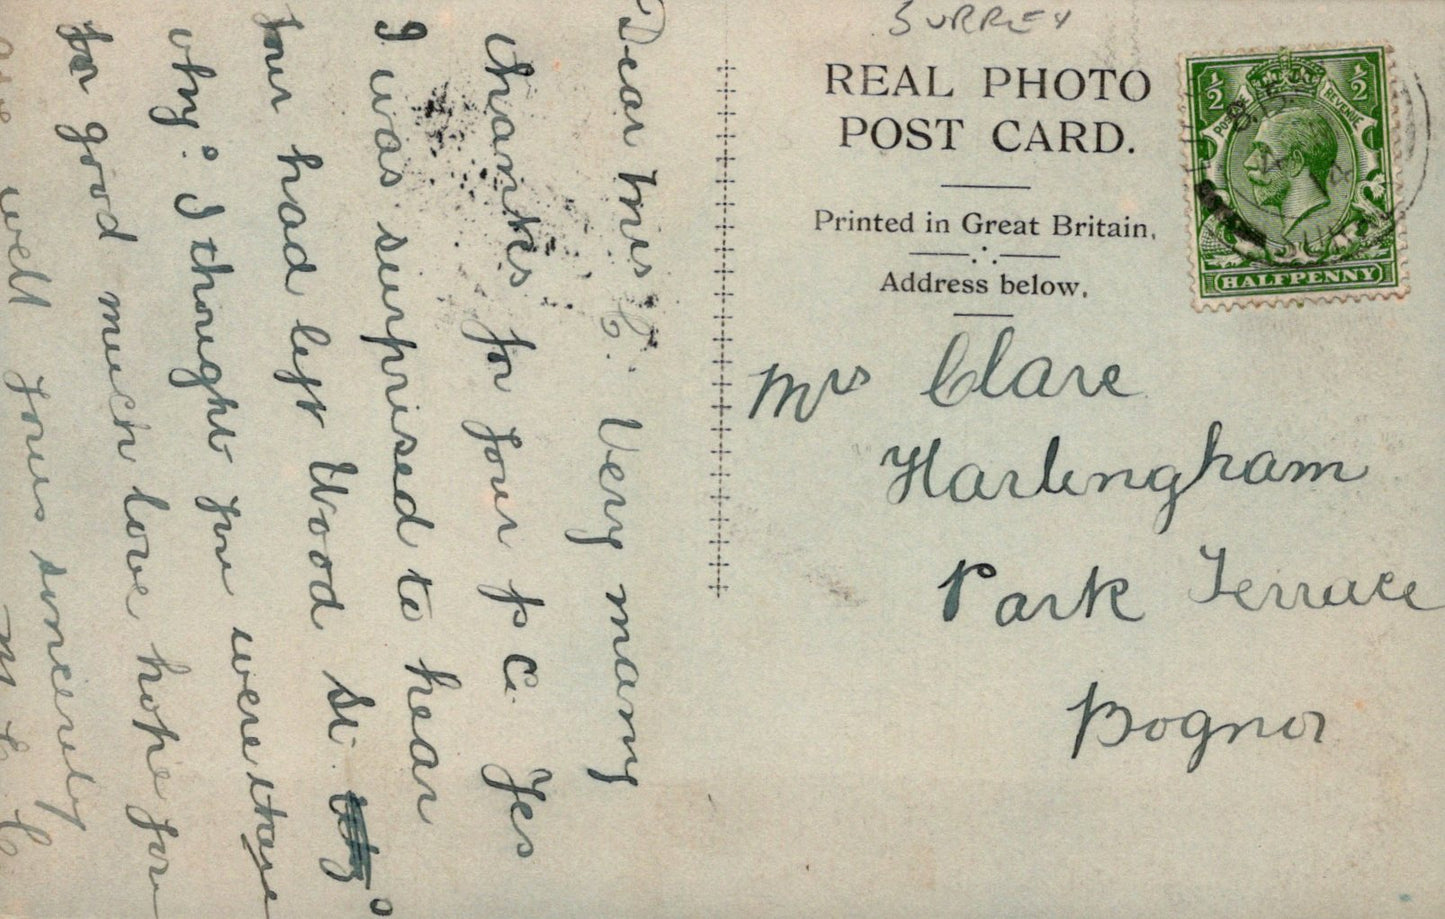 SURREY
REAL PHOTO
POST CARD.
Printed in Great Britain.
Address below.
½ ½
POSTAGE REVENUE
HALFPENNY
Mrs Clare
Harlingham
Park Terrace
Bognor
Dear Mrs C. Very many
thanks for your p C. Yes
I was surprised to hear
your had left Wood St.
why? I thought you were there
for good much love hope you
are well yours sincerely
M C C